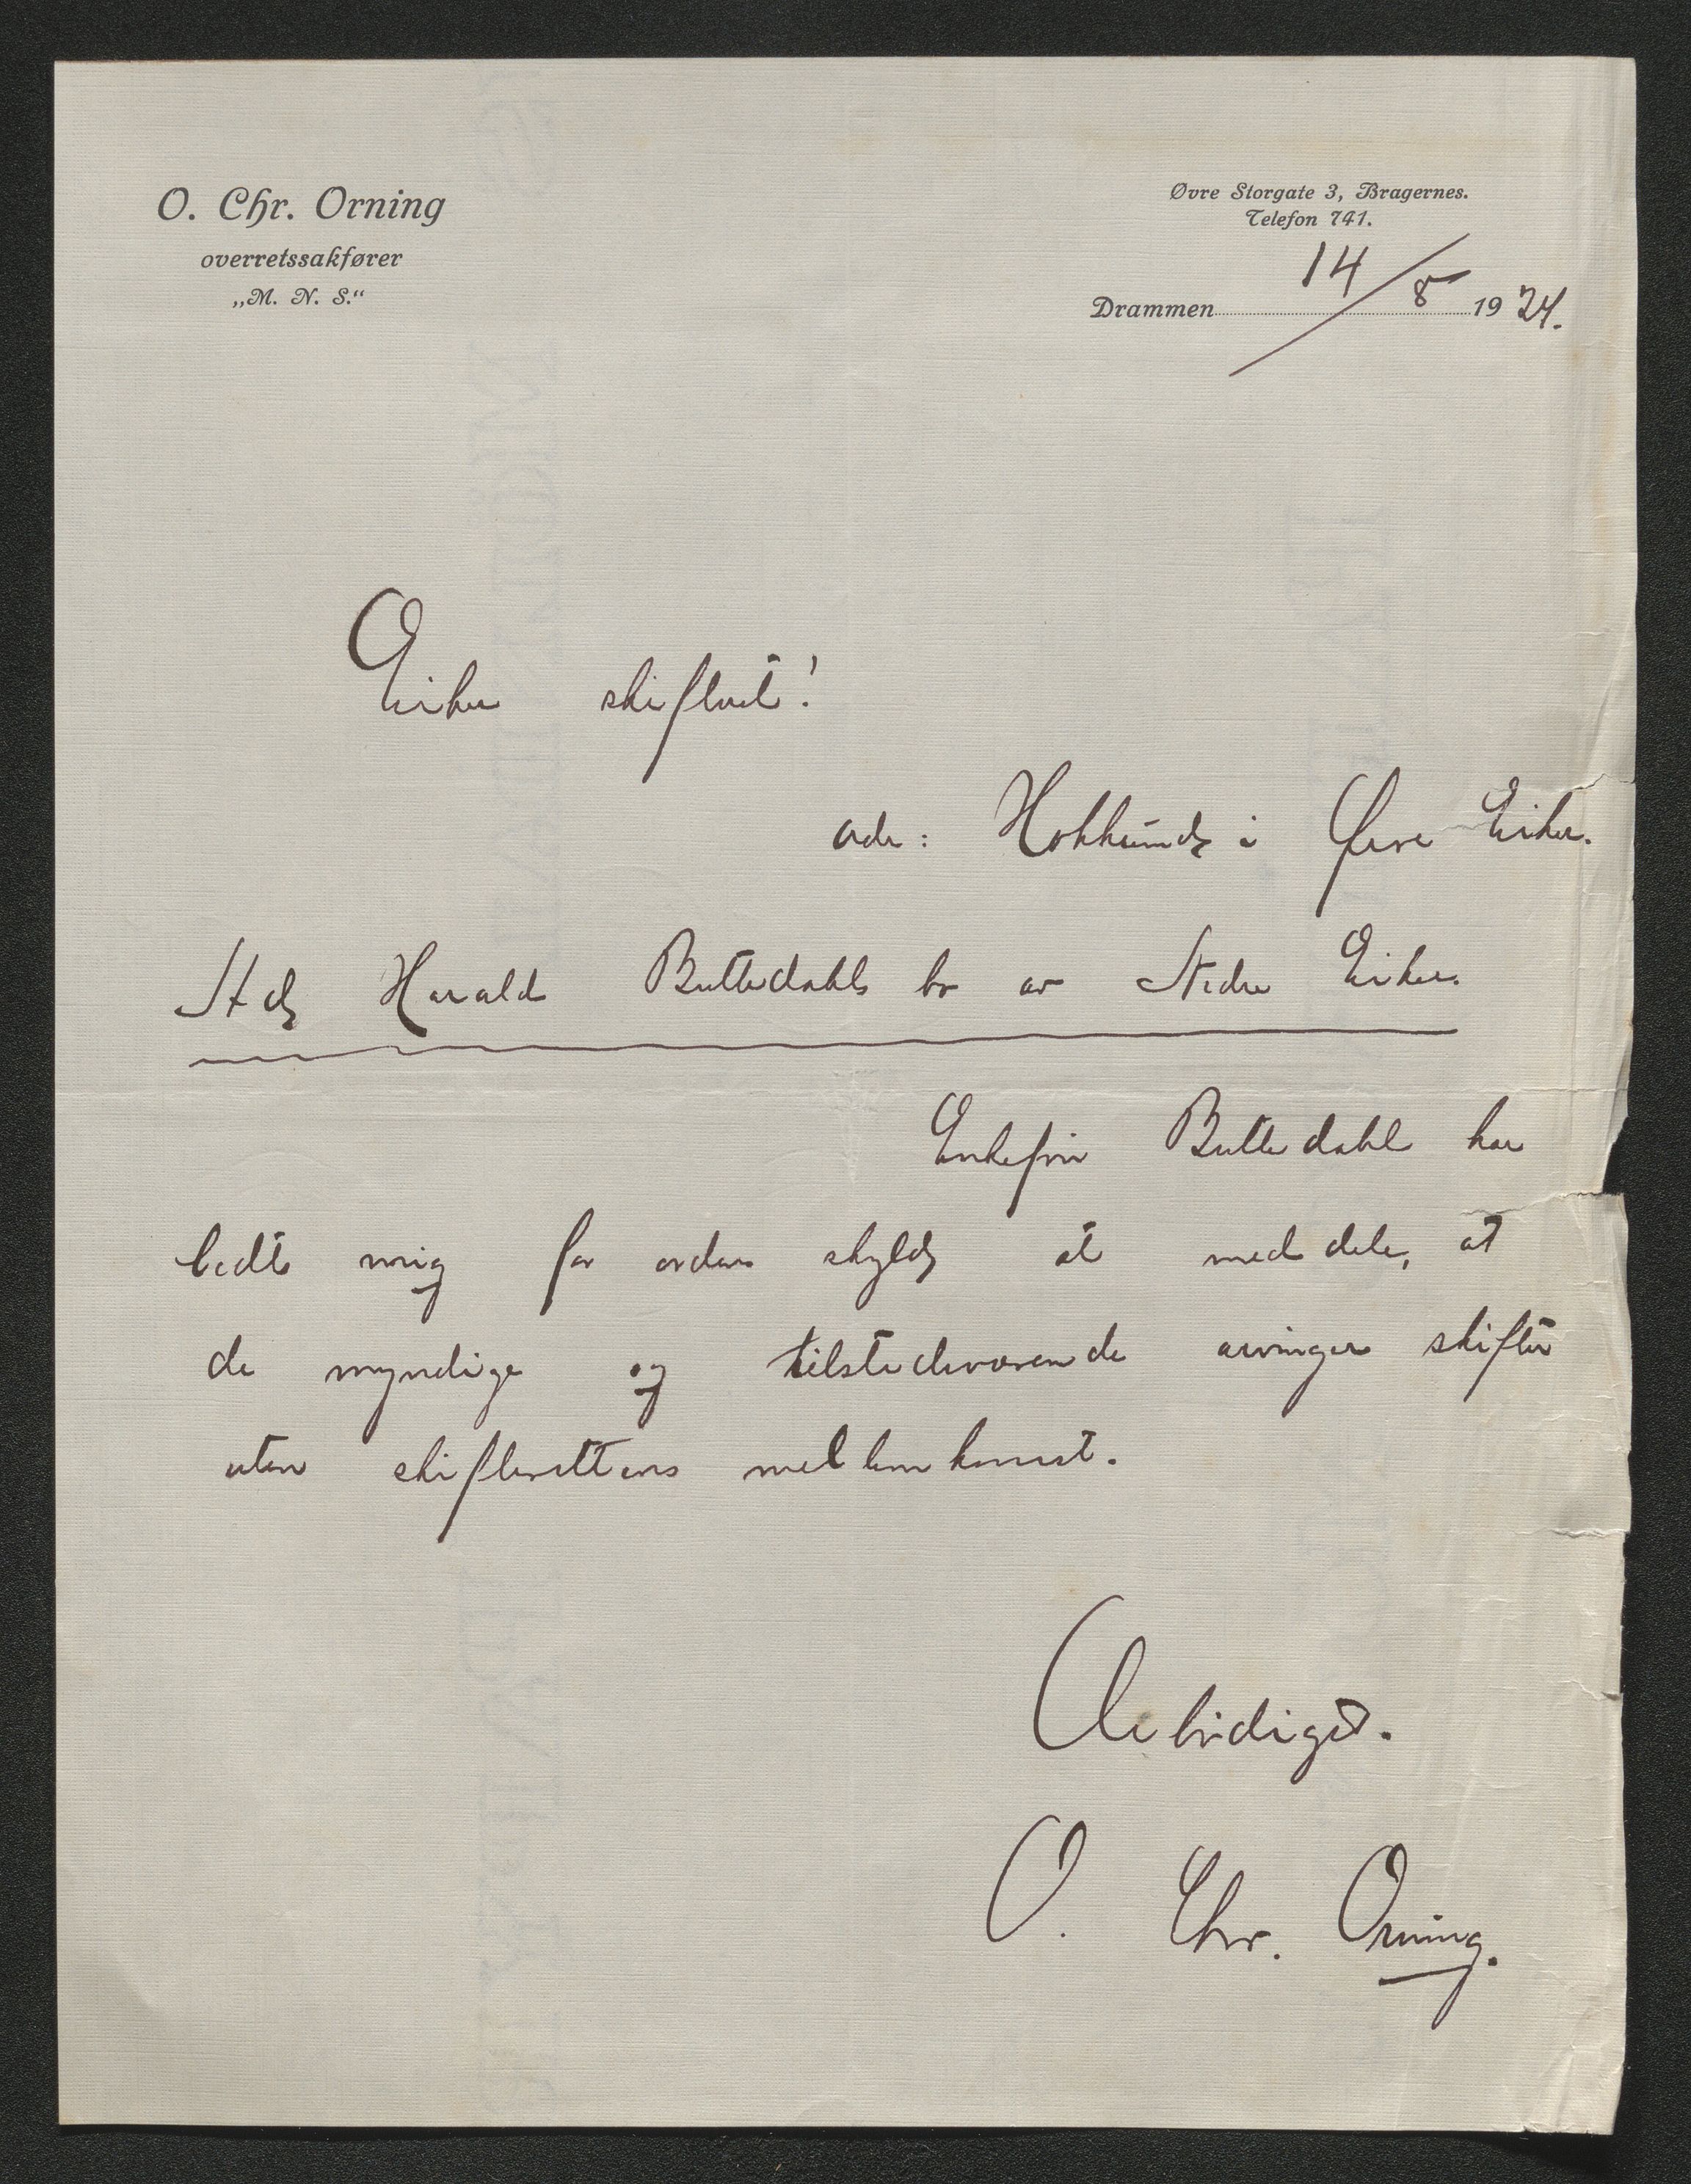 O. Chr. Orning
overretssakfører
„M. N. S.“
Øvre Storgate 3, Bragernes.
Telefon 741.
Drammen 14/8 1924.
Eiker skifteret!
adr: Hokksund i Øvre Eiker.
Harald Buttedahls bo av Nedre Eiker.
Enkefru Buttedahl har
bedt mig for ordens skyld at meddele, at
de myndige og tilstedeværende arvinger skifter
uten skifterettens mellemkomst.
Ærbødigst.
O. Chr. Orning.